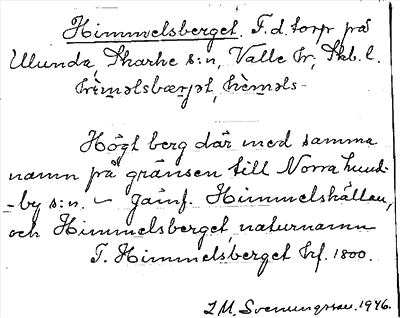 Himmelsberget. F.d. torp på
Ulunda, Skarke s:n, Valle hr, Skb. l.
hìm̥əlsbærjət, hìməls-
Högt berg där med samma
namn på gränsen till Norra Lund-
-by s:n. – Jämf. Himmelshällan,
och Himmelsberget, naturnamn
T. Himmelsberget hf. 1800.
I.M. Svenungsson. 1946.